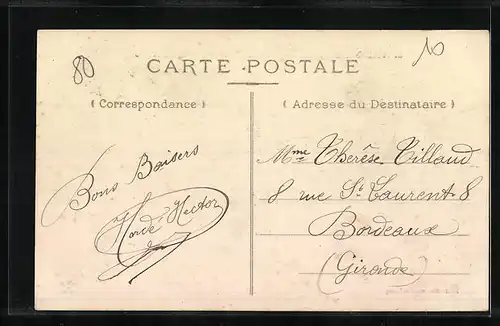 80
10
CARTE POSTALE
(Correspondance)
(Adresse du Destinataire)
Bons Baisers
Hector
Mme Thérèse Villaud
8 rue St Laurent 8
Bordeaux
(Gironde)